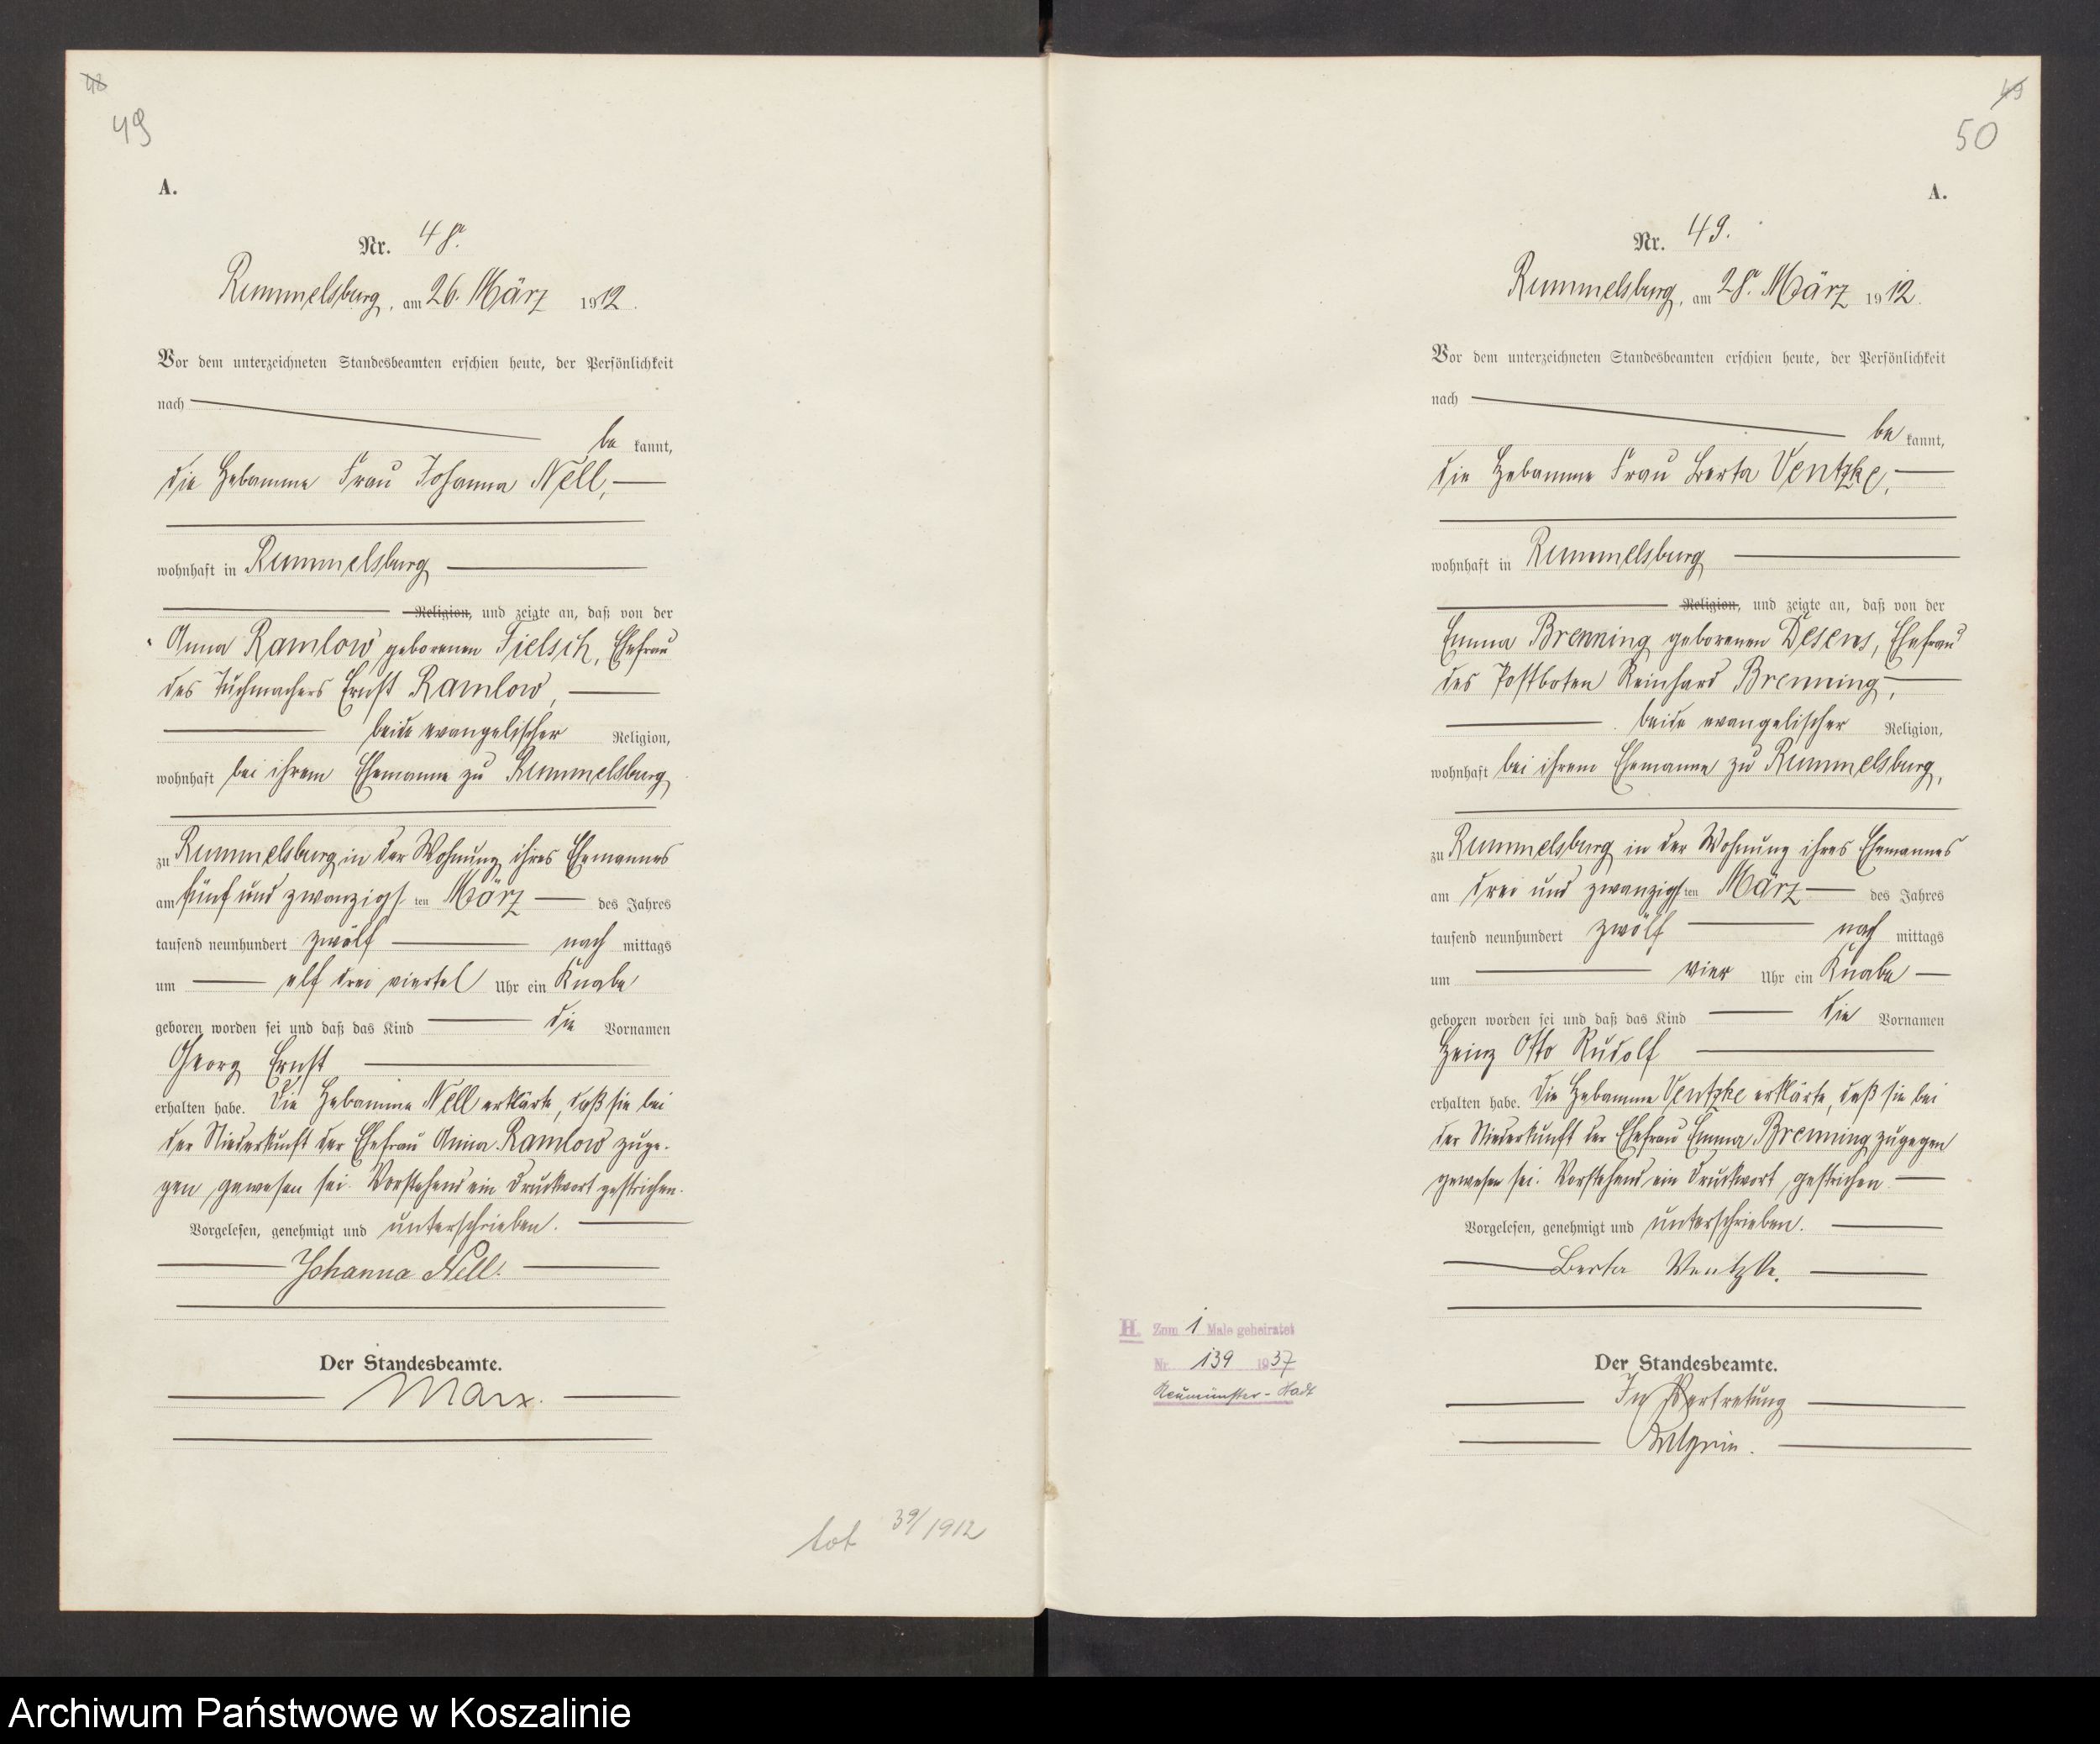 48
49
A.
Nr. 48.
Rummelsburg, am 26. März 1912.
Vor dem unterzeichneten Standesbeamten erschien heute, der Persönlichkeit
nach
be kannt,
die Hebamme Frau Johanna Nell,
wohnhaft in Rummelsburg
Religion, und zeigte an, daß von der
Anna Ramlow geborenen Fielsch, Ehefrau
des Tuchmachers Ernst Ramlow,
beide evangelischer Religion,
wohnhaft bei ihrem Ehemanne zu Rummelsburg
zu Rummelsburg in der Wohnung ihres Ehemannes
am fünf und zwanzigsten März des Jahres
tausend neunhundert zwölf nach mittags
um elf drei viertel Uhr ein Knabe
geboren worden sei und daß das Kind die Vornamen
Georg Ernst
erhalten habe. Die Hebamme Nell erklärte, daß sie bei
der Niederkunft der Ehefrau Anna Ramlow zuge-
gen gewesen sei. Vorstehend ein Druckwort gestrichen.
Vorgelesen, genehmigt und unterschrieben.
Johanna Nell.
Der Standesbeamte.
Marx.
tot 39/1912
49
50
A.
Nr. 49.
Rummelsburg, am 28. März 1912.
Vor dem unterzeichneten Standesbeamten erschien heute, der Persönlichkeit
nach
be kannt,
die Hebamme Frau Berta Ventzke,
wohnhaft in Rummelsburg
Religion, und zeigte an, daß von der
Emma Brenning geborenen Desens, Ehefrau
des Postboten Reinhard Brenning,
beide evangelischer Religion,
wohnhaft bei ihrem Ehemanne zu Rummelsburg,
zu Rummelsburg in der Wohnung ihres Ehemannes
am drei und zwanzigsten März des Jahres
tausend neunhundert zwölf nach mittags
um vier Uhr ein Knabe
geboren worden sei und daß das Kind die Vornamen
Heinz Otto Rudolf
erhalten habe. Die Hebamme Ventzke erklärte, daß sie bei
der Niederkunft der Ehefrau Emma Brenning zugegen
gewesen sei. Vorstehend ein Druckwort gestrichen.
Vorgelesen, genehmigt und unterschrieben.
Berta Wentzke.
H. Zum 1 Male geheiratet
Nr. 139 1937
Neumünster-Stadt
Der Standesbeamte.
In Vertretung
Archiwum Państwowe w Koszalinie